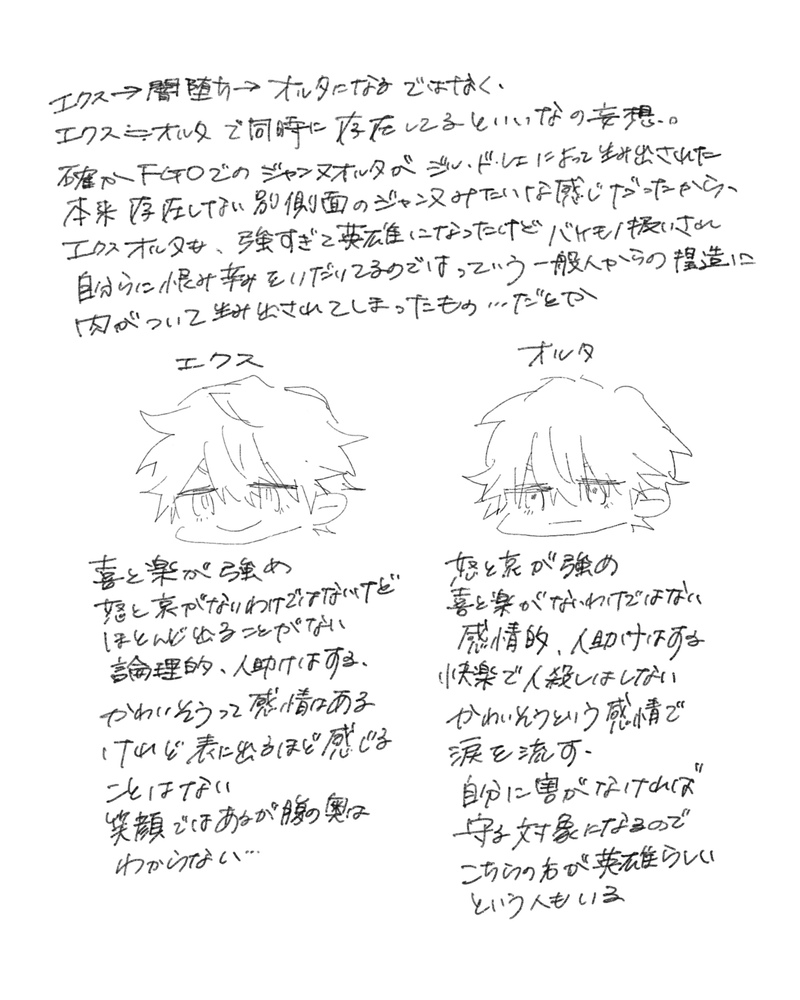 エクス→闇堕ち→オルタになるではなく、
エクス≒オルタで同時に存在してるといいなの妄想。。
確かFGOでのジャンヌオルタがジル・ド・レェによって生み出された
本来存在しない別側面のジャンヌみたいな感じだったから、
エクスオルタも、強すぎて英雄になったけどバケモノ扱いされ
自分らに恨み辛みをいだいてるのではっていう一般人からの捏造に
肉がついて生み出されてしまったもの…だとか
エクス
喜と楽が強め
怒と哀がないわけではないけど
ほとんど出ることがない
論理的、人助けはする、
かわいそうって感情はある
けれど表に出るほど感じる
ことはない
笑顔ではあるが腹の奥は
わからない…
オルタ
怒と哀が強め
喜と楽がないわけではない
感情的、人助けはする
快楽で人殺しはしない
かわいそうという感情で
涙を流す、
自分に害がなければ
守る対象になるので
こちらの方が英雄らしい
という人もいる